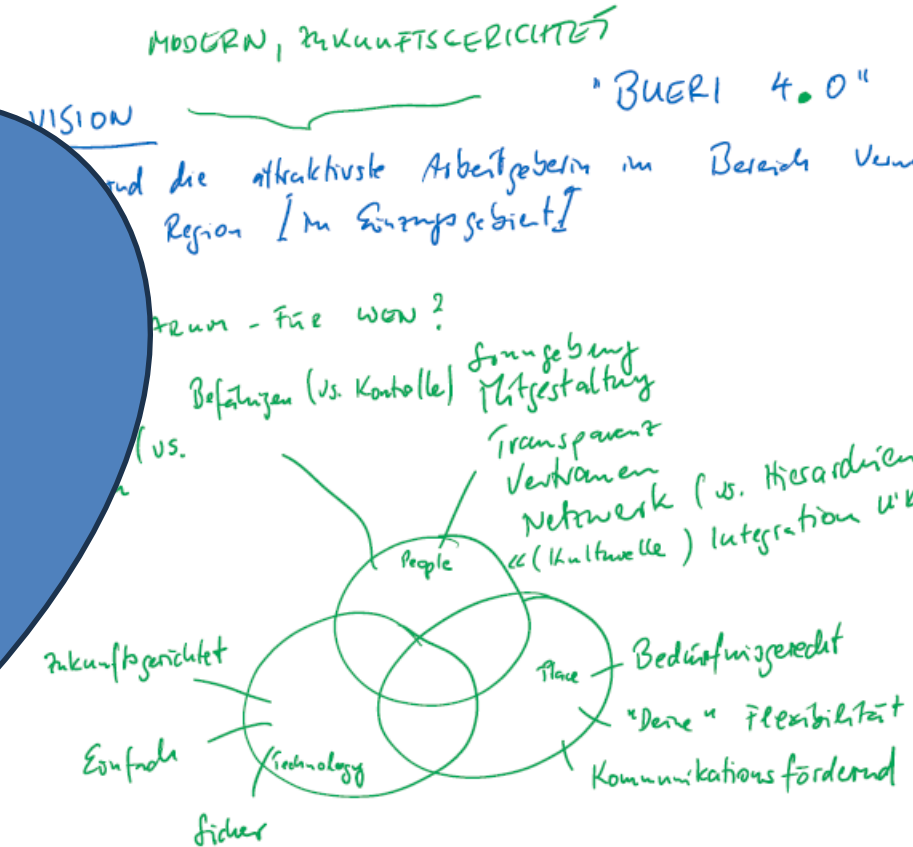 MODERN, ZUKUNFTSGERICHTET
"BUERI 4.0"
VISION
die attraktivste Arbeitgeberin im Bereich
Region [im Einzugsgebiet]
- FÜR WEN?
Befähigen (vs. Kontrolle)
Sinngebung
Mitgestaltung
(vs.
Transparenz
Vertrauen
Netzwerk (vs. Hierarchien
"(Kulturelle) Integration
People
Zukunftsgerichtet
Place
Bedürfnisgerecht
"Deine" Flexibilität
Einfach
Technology
Kommunikationsfördernd
Sicher